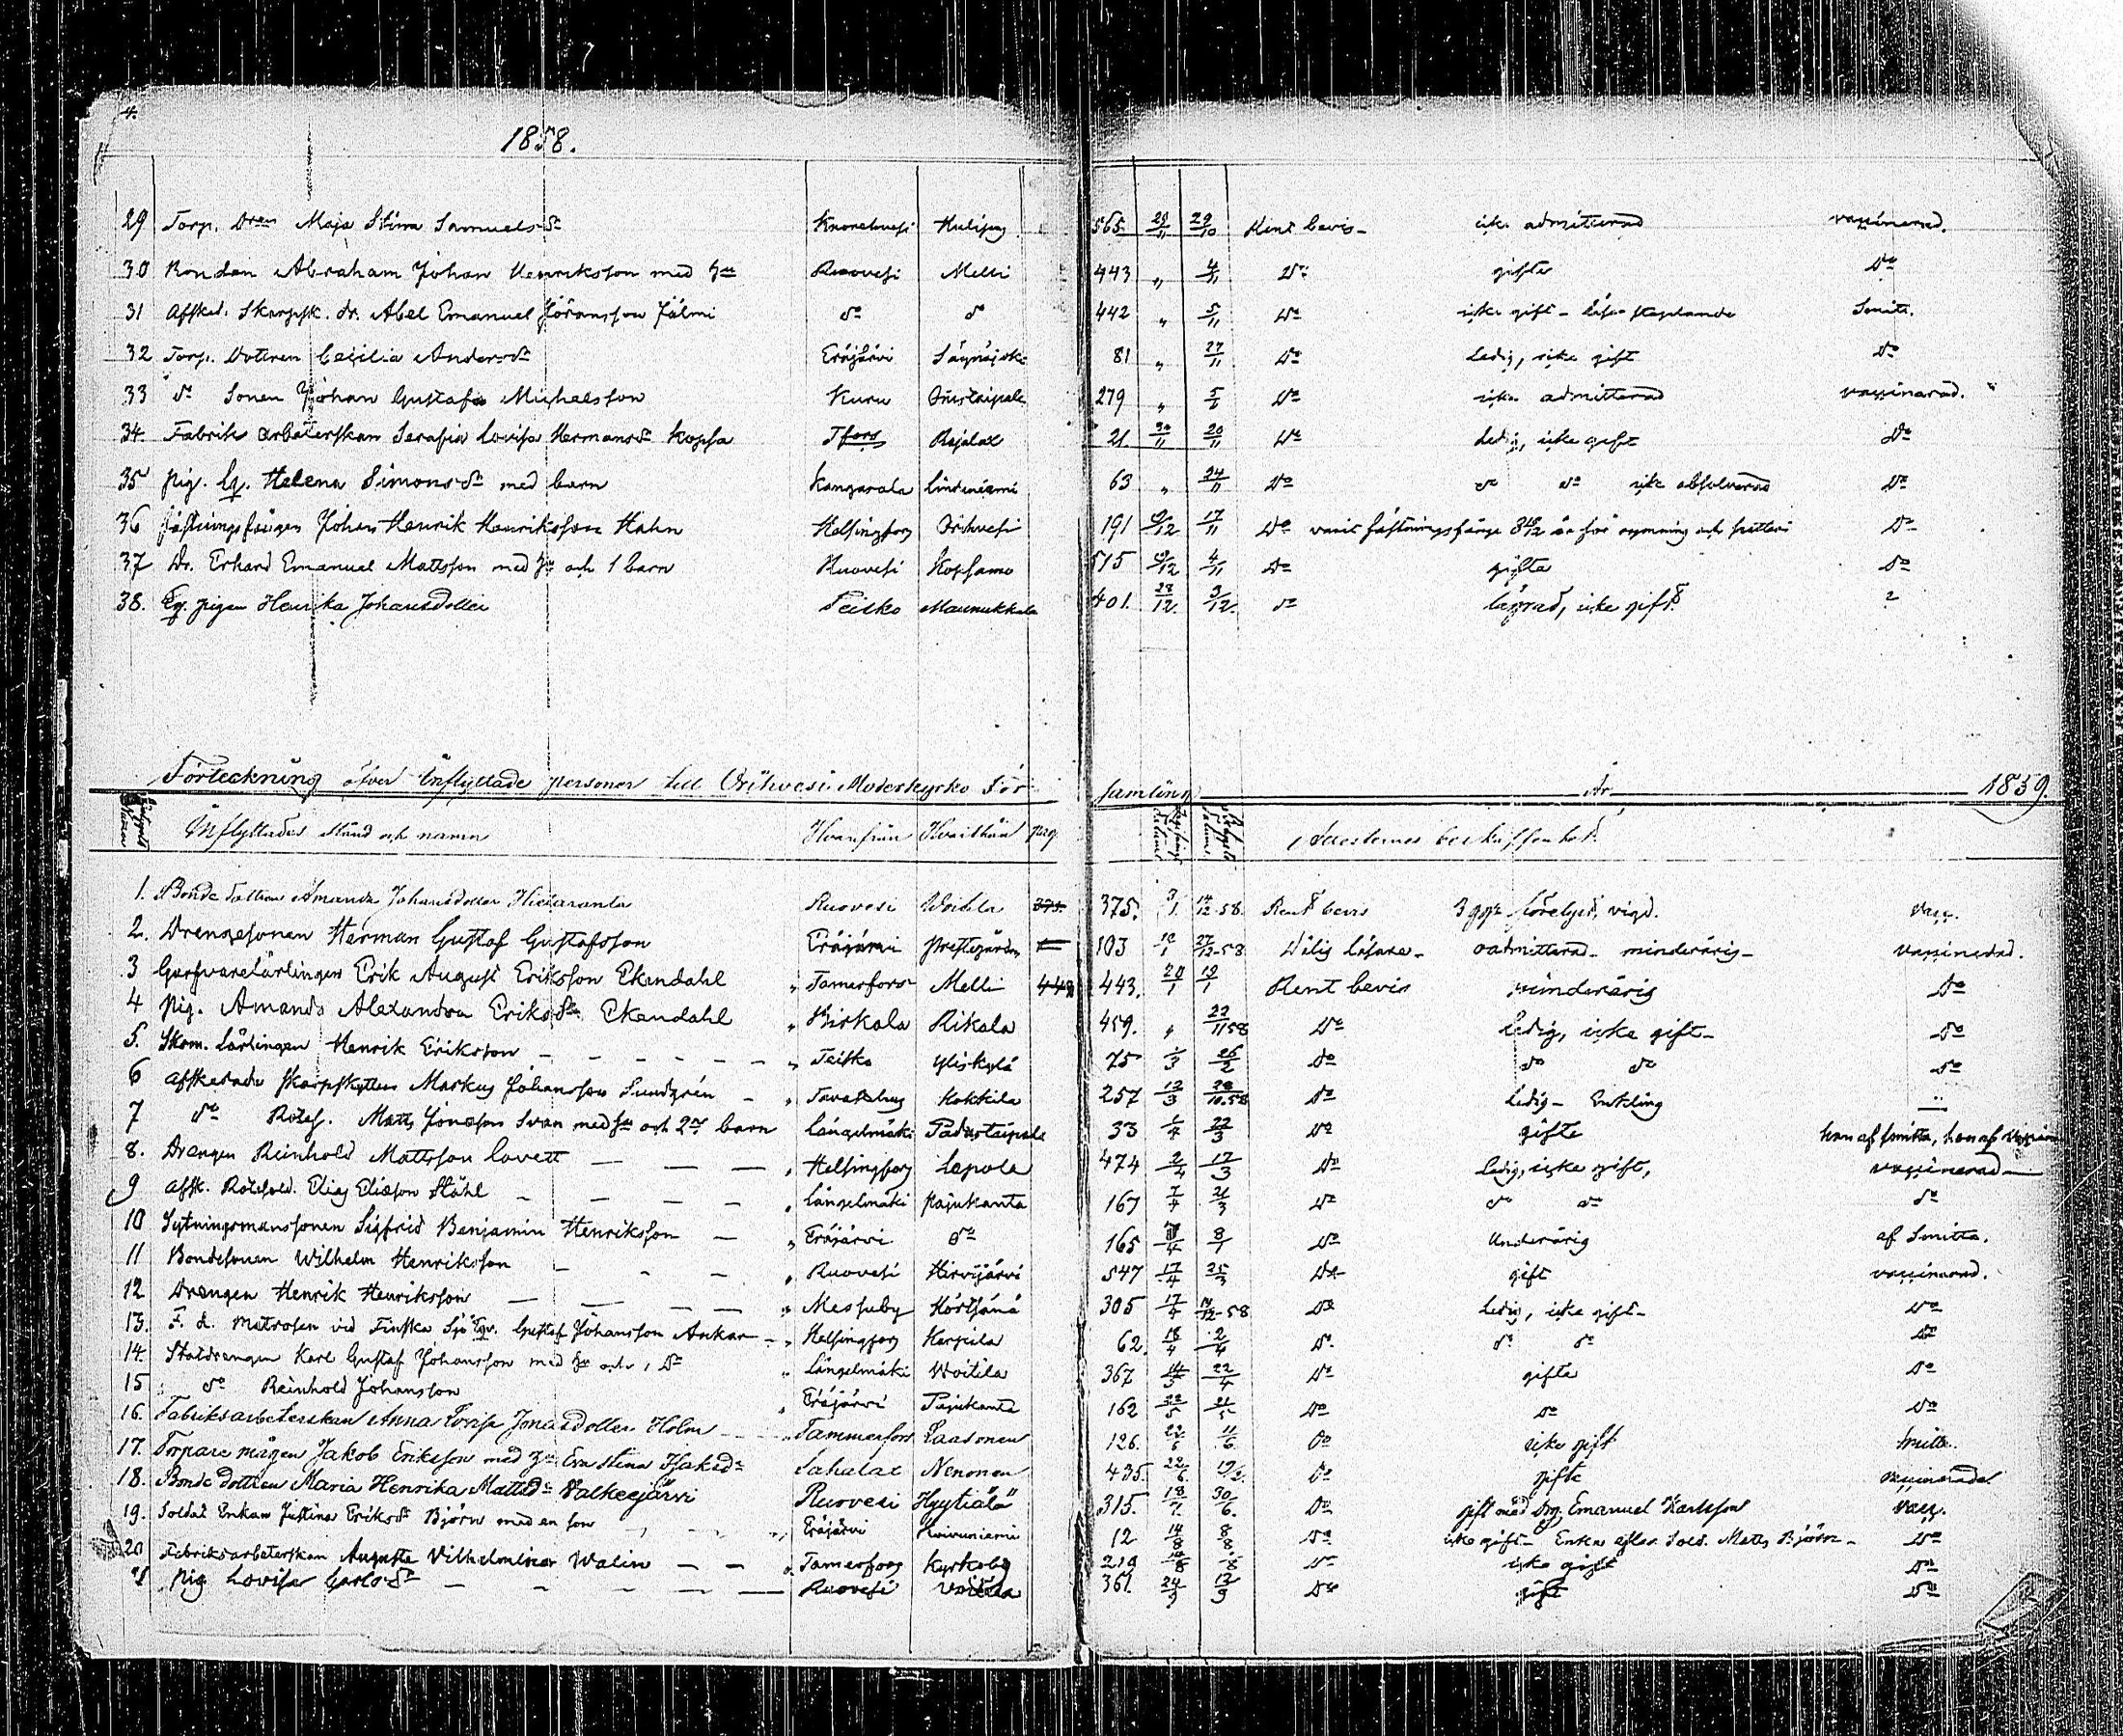 4.
1858.
29 Torp. Dren Maja Stina Samuelsdr Kuorehvesi 565. 29/11 29/10 Rent bevis - icke admitterad vaccinerad.
30 Bonden Abraham Johan Henriksson med hu Ruovesi Melli 443 " 4/11 Do gifta Do
31 Afsked. Skarpsk. dr. Abel Emanuel Jöransson Jälmi do do 442 " 5/11 Do icke gift - Smitt.
32 Torp. Dottren Cecilia Andersdr Eräjärvi 81 " 27/11 Do Ledig, icke gift Do
33 do Sonen Johan Gustaf Michelsson Kuru 279 " Do icke admitterad vaccinerad.
34. Fabriks arbeterskan Serafia Lovisa Hermansdr Kopsa Tfors Rajalax 21. 30/11 20/11 Do Ledig, icke gift Do
35 Pig. Eg. Helena Simonsdr med barn Kangasala Lindeniemi 63 " 24/11 Do do do icke absolverad Do
36 Fästningsfången Johan Henrik Henriksson Hahn Helsingfors Orihvesi 191 17/11 Do varit fästningsfånge för rymning och Do
37 Dr. Erhard Emanuel Mattsson med hu och 1 barn Ruovesi Kopsamo 515 4/11 Do gifta Do
38. Eg. pigan Henrika Johansdotter Teisko Maunukkala 401. 28/12. 9/12. do icke gift. ?
Förteckning öfver Inflyttade personer till Orihvesi Moderkyrko För- samling År 1859.
Inflyttades stånd och namn Hvarifrån Hvarthän pag. Attesternes beskaffenhet.
1. Bonde dottren Amanda Johansdotter Hietaranta Ruovesi Woitila 375. 375. 3/1. 14/12-58. Rent bevis 3 ggr lyst, vigd. vacc.
2. Drengesonen Herman Gustaf Gustafsson Eräjärvi Prestgården 103 27/12-58 Dålig läsare - oadmitterad - minderårig - vaccinerad.
3 Garfvarelärlingen Erik August Eriksson Ekendahl " Tamerfors Melli 443 443. 20/1 19/1 Rent bevis minderårig Do
4 Pig. Amanda Alexandra Eriksdr Ekendahl " Birkala Rikala 459. " 22/11 58 Do Ledig, icke gift - Do
5. Skom. Lärlingen Henrik Eriksson - " Teisko Yliskylä 75 1/3 26/2 do do do do
6 Afskedade skarpskytten Markus Johansson Sundgrén - " Tavastehus Kokkila 257 13/3 20/10.58 Do Ledig - Enkling
7 do Rotes. Matts Jonasson Svan med hu och 2ne barn Längelmäki Padustaipale 33 1/4 22/3 Do gifte han af smitta, hon af vaccin
8. Drengen Reinhold Mattsson Lovett - " Helsingfors Lepola 474 2/4 17/3 Do Ledig, icke gift, vaccinerad -
9 Afsk. Rotesold. Elias Eliasson Ståhl - " Längelmäki Pajukanta 167 7/4 21/3 Do do do do
10 Sytningsmanssonen Sigfrid Benjamin Henriksson - " Eräjärvi do 165 8/1 Do Underårig af Smitta.
11 Bondesonen Wilhelm Henriksson - " Ruovesi Hirvijärvi 547 17/4 25/3 Do gift vaccinerad.
12 Drengen Henrik Henriksson - " Messuby Körtsänä 305 17/4 14/12-58 Do Ledig, icke gift - Do
13. F. d. Matrosen vid Finska Sjö Eqv. Gustaf Johansson Ankar - " Helsingfors Karpila 62. 18/4 2/4 Do do do Do
14. Statdrengen Karl Gustaf Johansson med hu och 1 dr " Längelmäki Woitila 367 22/4 Do gifta Do
15 do Reinhold Johansson " Eräjärvi Pajukanta 162 22/5 21/5 Do Do Do
16. Fabriksarbeterskan Anna Lovisa Jonasdotter Holm - " Tammerfors Laasonen 126. 22/6 11/6. Do icke gift smitta.
17. Torpare mågen Jakob Eriksson med hu Eva Stina Isaksdr Sahalax Nenonen 435. 22/6. Do gifta vaccinerade
18. Bonde dottren Maria Henrika Mattsdr Valkeejärvi Ruovesi Hyytiälä 315. 18/7. 30/6. Do gift med drg. Emanuel Karlsson vacc.
19. Soldat Enkan Justina Eriksdr Björn med en son " Eräjärvi Koivuniemi 12 14/8 8/8 Do icke gift - Enka efter Sold. Matts Björn - Do
20 Fabriksarbeterskan Augusta Vilhelmina Walin - - " Tamerfors Kyrkoby 219 Do icke gift Do
21 Pig Lovisa Carlsdr - Ruovesi Voitila 361. 24/9 12/9 Do gift Do